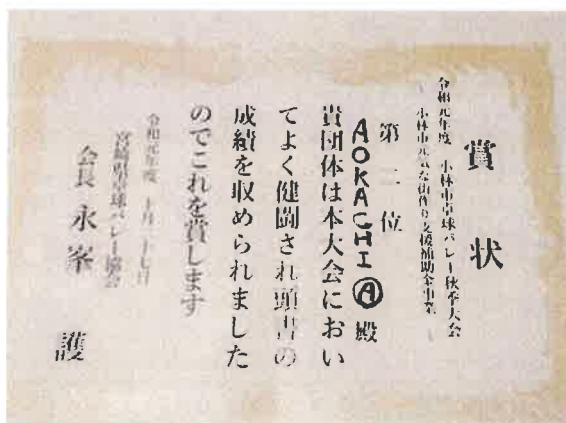 賞状
令和元年度 小林市卓球バレー秋季大会
小林市元気な街作り支援補助金事業
第二位
AOKACHI Ⓐ 殿
貴団体は本大会におい
てよく健闘され頭書の
成績を収められました
のでこれを賞します
令和元年度 十月二十七日
宮崎県卓球バレー協会
会長 永峯 護